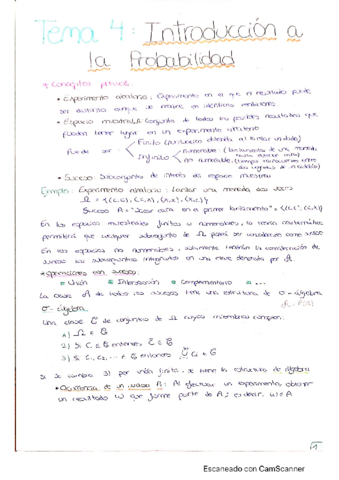 Tema 4: Introducción a
la Probabilidad
* Conceptos previos:
• Experimento aleatorio: Experimento en el que el resultado puede
ser distinto aunque se realice en idénticas condiciones
• Espacio muestral, Ω: Conjunto de todos los posibles resultados que
pueden tener lugar en un experimento aleatorio
Finito
Puede ser:
Infinito
numerable
no numerable
• Suceso: Subconjunto de interés de espacio muestral
Ejemplo: Experimento aleatorio: lanzar una moneda dos veces
Ω = {(C,C), (C,X), (X,X), (X,C)}
Suceso A = "Sacar cara en el primer lanzamiento" = {(C,C), (C,X)}
En los espacios muestrales finitos o numerables, la teoría matemática
permitirá que cualquier subconjunto de Ω pueda ser considerado como suceso
En los espacios no numerables, solamente tendrán la consideración de
suceso los subconjuntos integrados en una clase denotada por A.
* Operaciones con sucesos:
Unión Intersección Complementario ...
La clase A de todos los sucesos tiene una estructura de σ-álgebra
σ-álgebra
Una clase C de conjuntos de Ω cuyos miembros cumplen:
1) Ω ∈ C
2) Si C ∈ C entonces C̄ ∈ C
3) Si C₁, C₂, ... ∈ C entonces ∪ Cᵢ ∈ C
Si se cambia 3) por unión finita, se tiene la estructura de álgebra
• Ocurrencia de un suceso A: Al efectuar un experimento, obtener
un resultado ω que forme parte de A; es decir, ω ∈ A
1
Escaneado con CamScanner